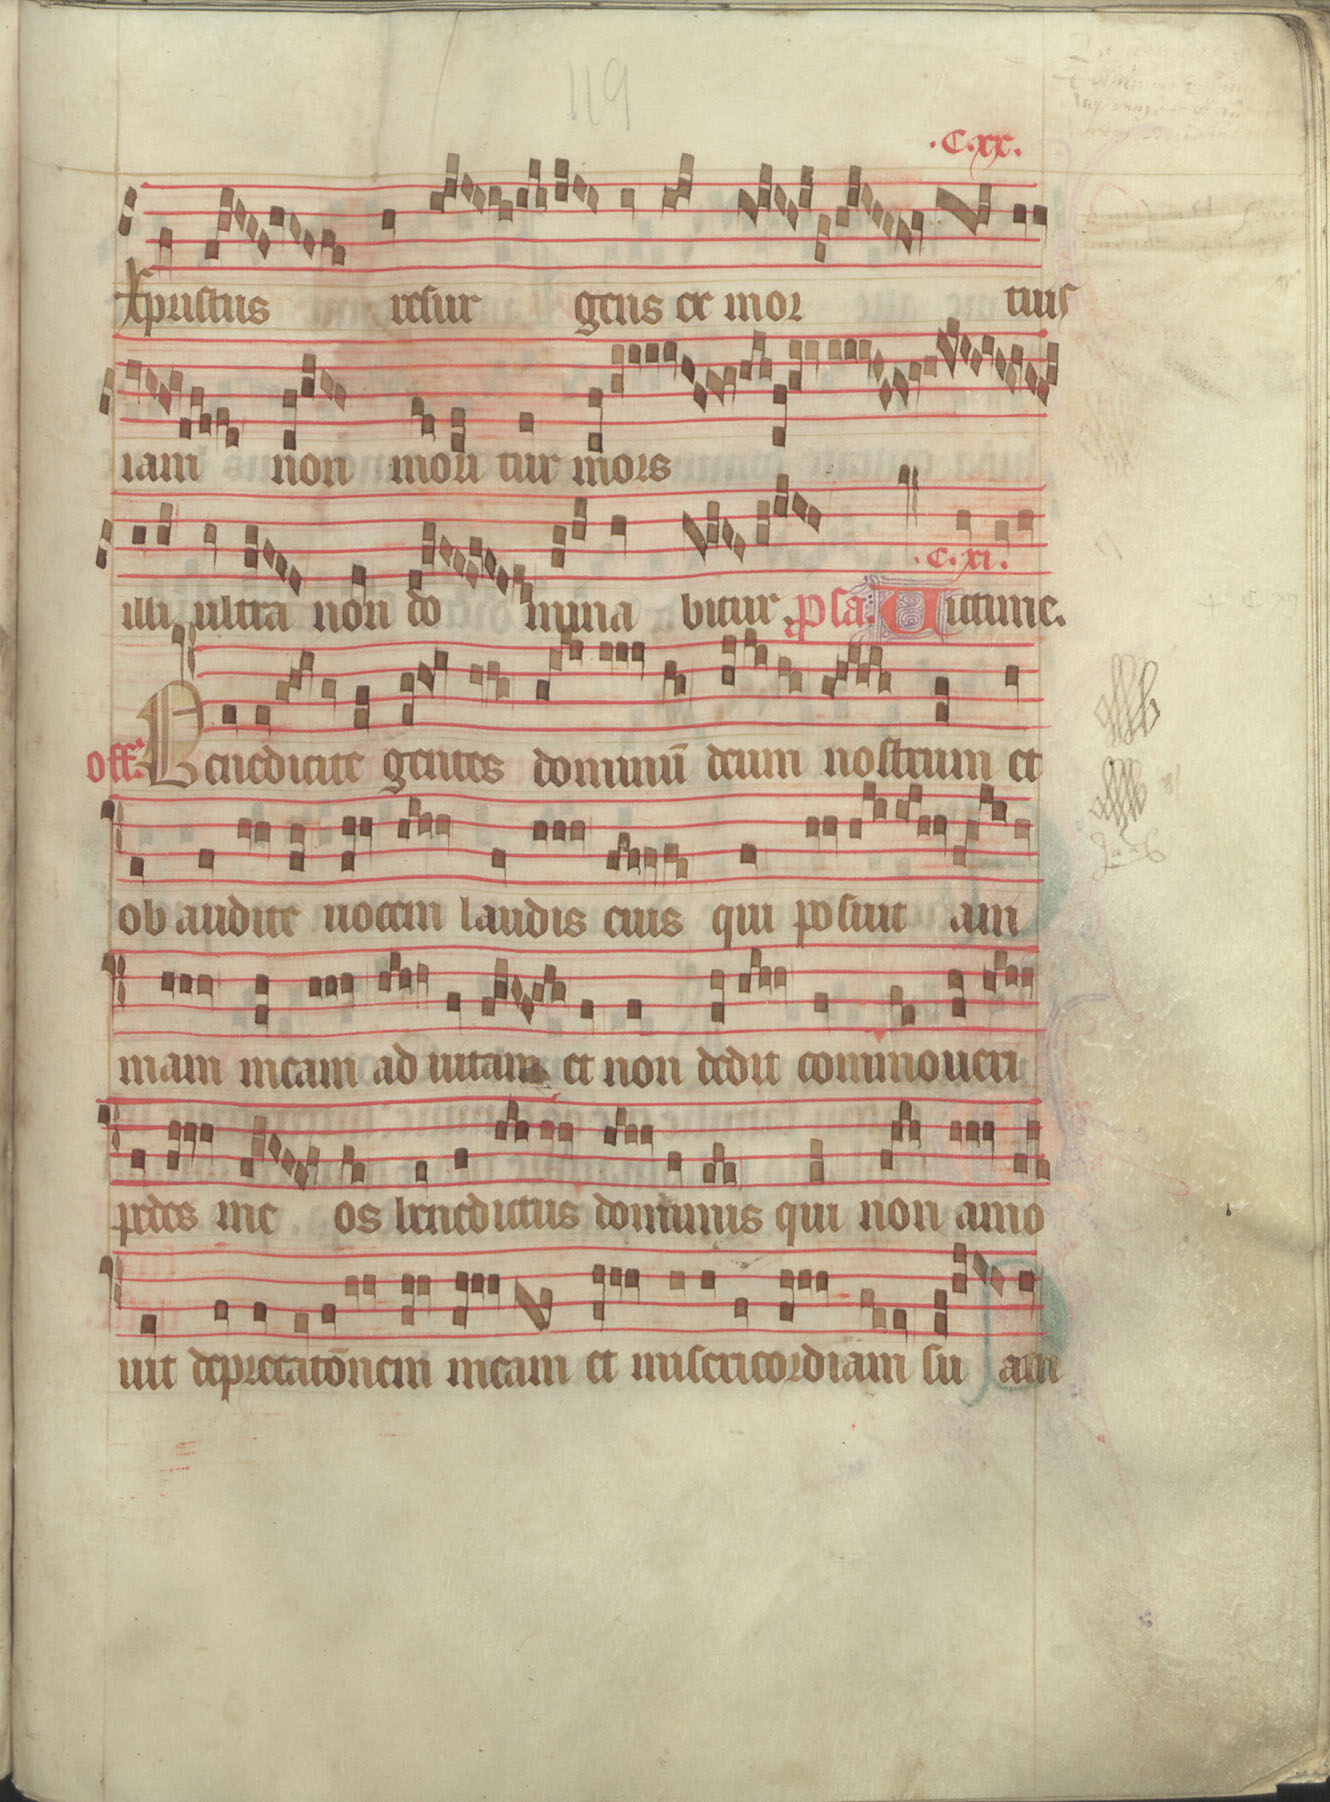 119
.C.xx.
xpristus resur gens ex mor tuis
iam non mori tur mors
.c.xi.
illi ultra non do mina bitur psa. Uictime.
off. Benedicite gentes dominū deum nostrum et
ob audite uocem laudis eius qui posuit ani
mam meam ad uitam et non dedit commoueri
pedes me os benedictus dominus qui non amo
uit deprecatōnem meam et misericordiam su am